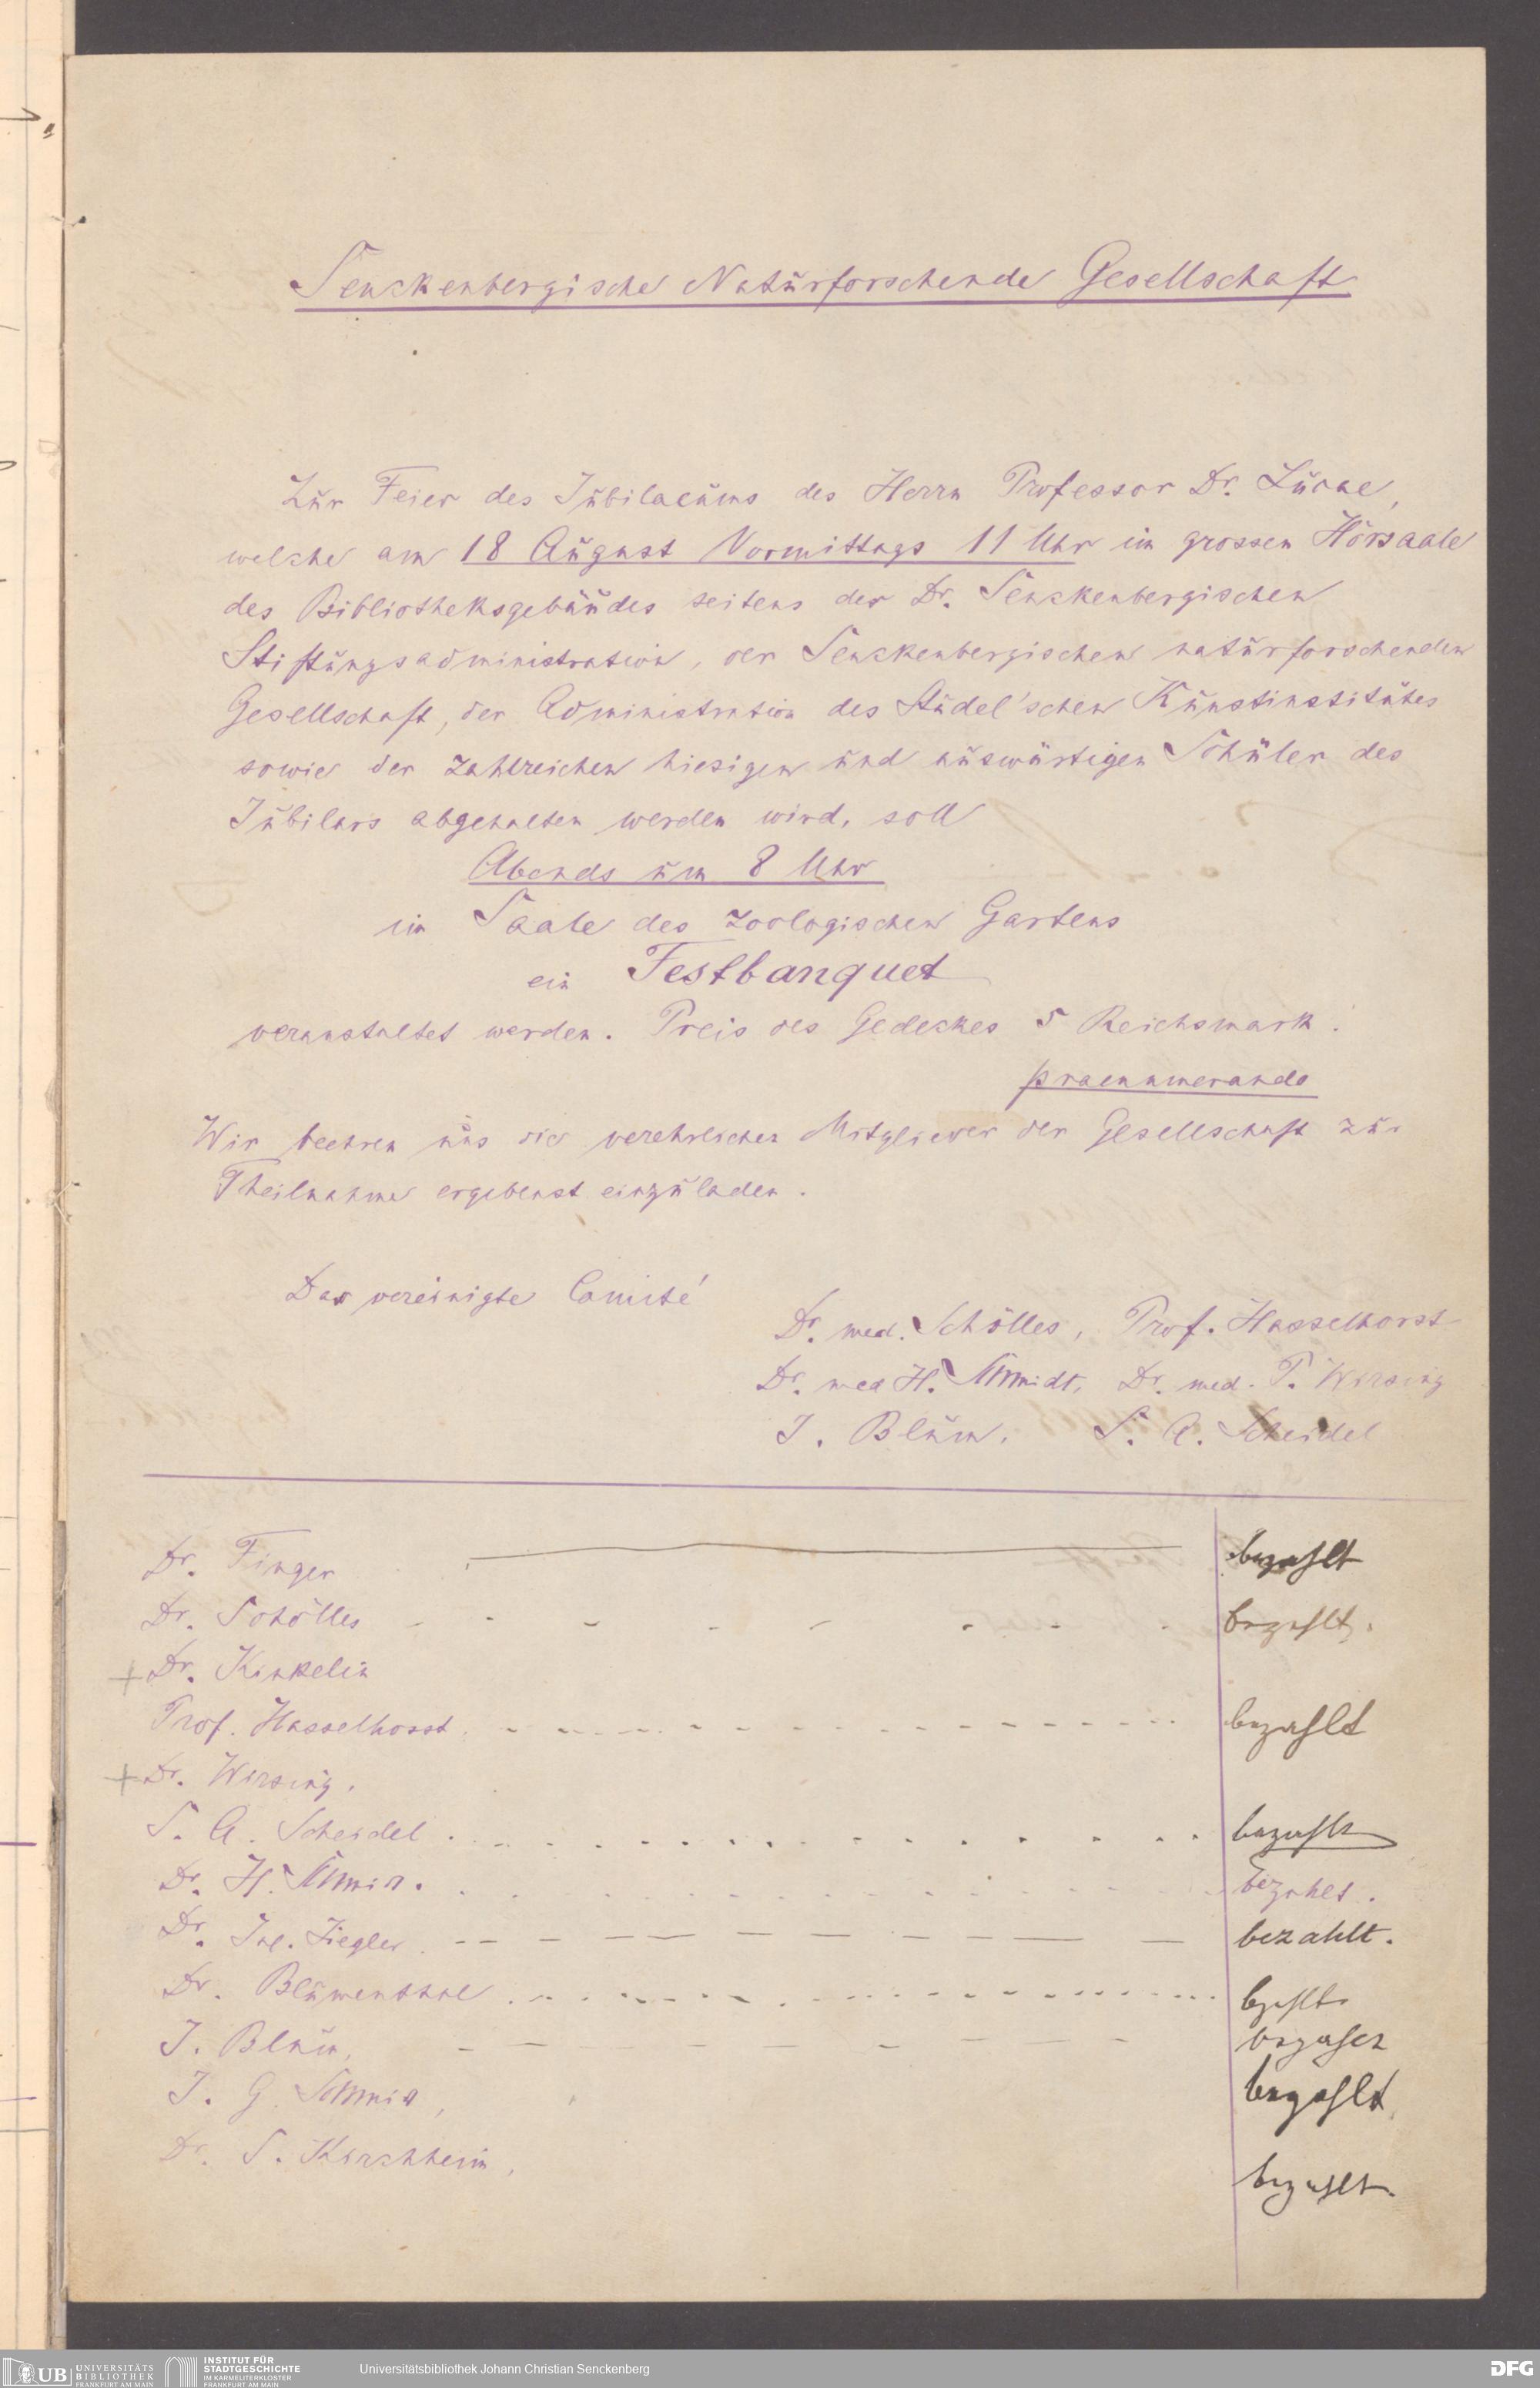 Senckenbergische Naturforschende Gesellschaft
Zur Feier des Jubilaeums des Herrn Professor Dr. Lucae,
welche am 18 August Vormittags 11 Uhr im grossen Hörsaale
des Bibliotheksgebäudes seitens der Dr. Senckenbergischen
Stiftungsadministration, der Senckenbergischen naturforschenden
Gesellschaft, der Administration des Städel'schen Kunstinstitutes
sowie der zahlreichen hiesigen und auswärtigen Schüler des
Jubilars abgehalten werden wird, soll
Abends um 8 Uhr
im Saale des zoologischen Gartens
ein Festbanquet
veranstaltet werden. Preis des Gedeckes 5 Reichsmark.
praenumerando
Wir beehren uns die verehrlichen Mitglieder der Gesellschaft zur
Theilnahme ergebenst einzuladen.
Das vereinigte Comité
Dr. med. Schölles, Prof. Hasselhorst
Dr. med H. Schmidt, Dr. med. P. Wirsing
J. Blum, S. A. Scheidel
Dr. Finger bezahlt
Dr. Schölles bezahlt.
+ Dr. Kinkelin
Prof. Hasselhorst bezahlt
+ Dr. Wirsing.
S. A. Scheidel bezahlt
Dr. H. Schmidt. bezahlt.
Dr. Jul. Ziegler bezahlt.
Dr. Blumenthal bezahlt
J. Blum, bezahlt
J. G. Schmidt, bezahlt
Dr. S. Kirchheim, bezahlt.
UB UNIVERSITÄTS
BIBLIOTHEK
FRANKFURT AM MAIN
INSTITUT FÜR
STADTGESCHICHTE
IM KARMELITERKLOSTER
FRANKFURT AM MAIN
Universitätsbibliothek Johann Christian Senckenberg
DFG